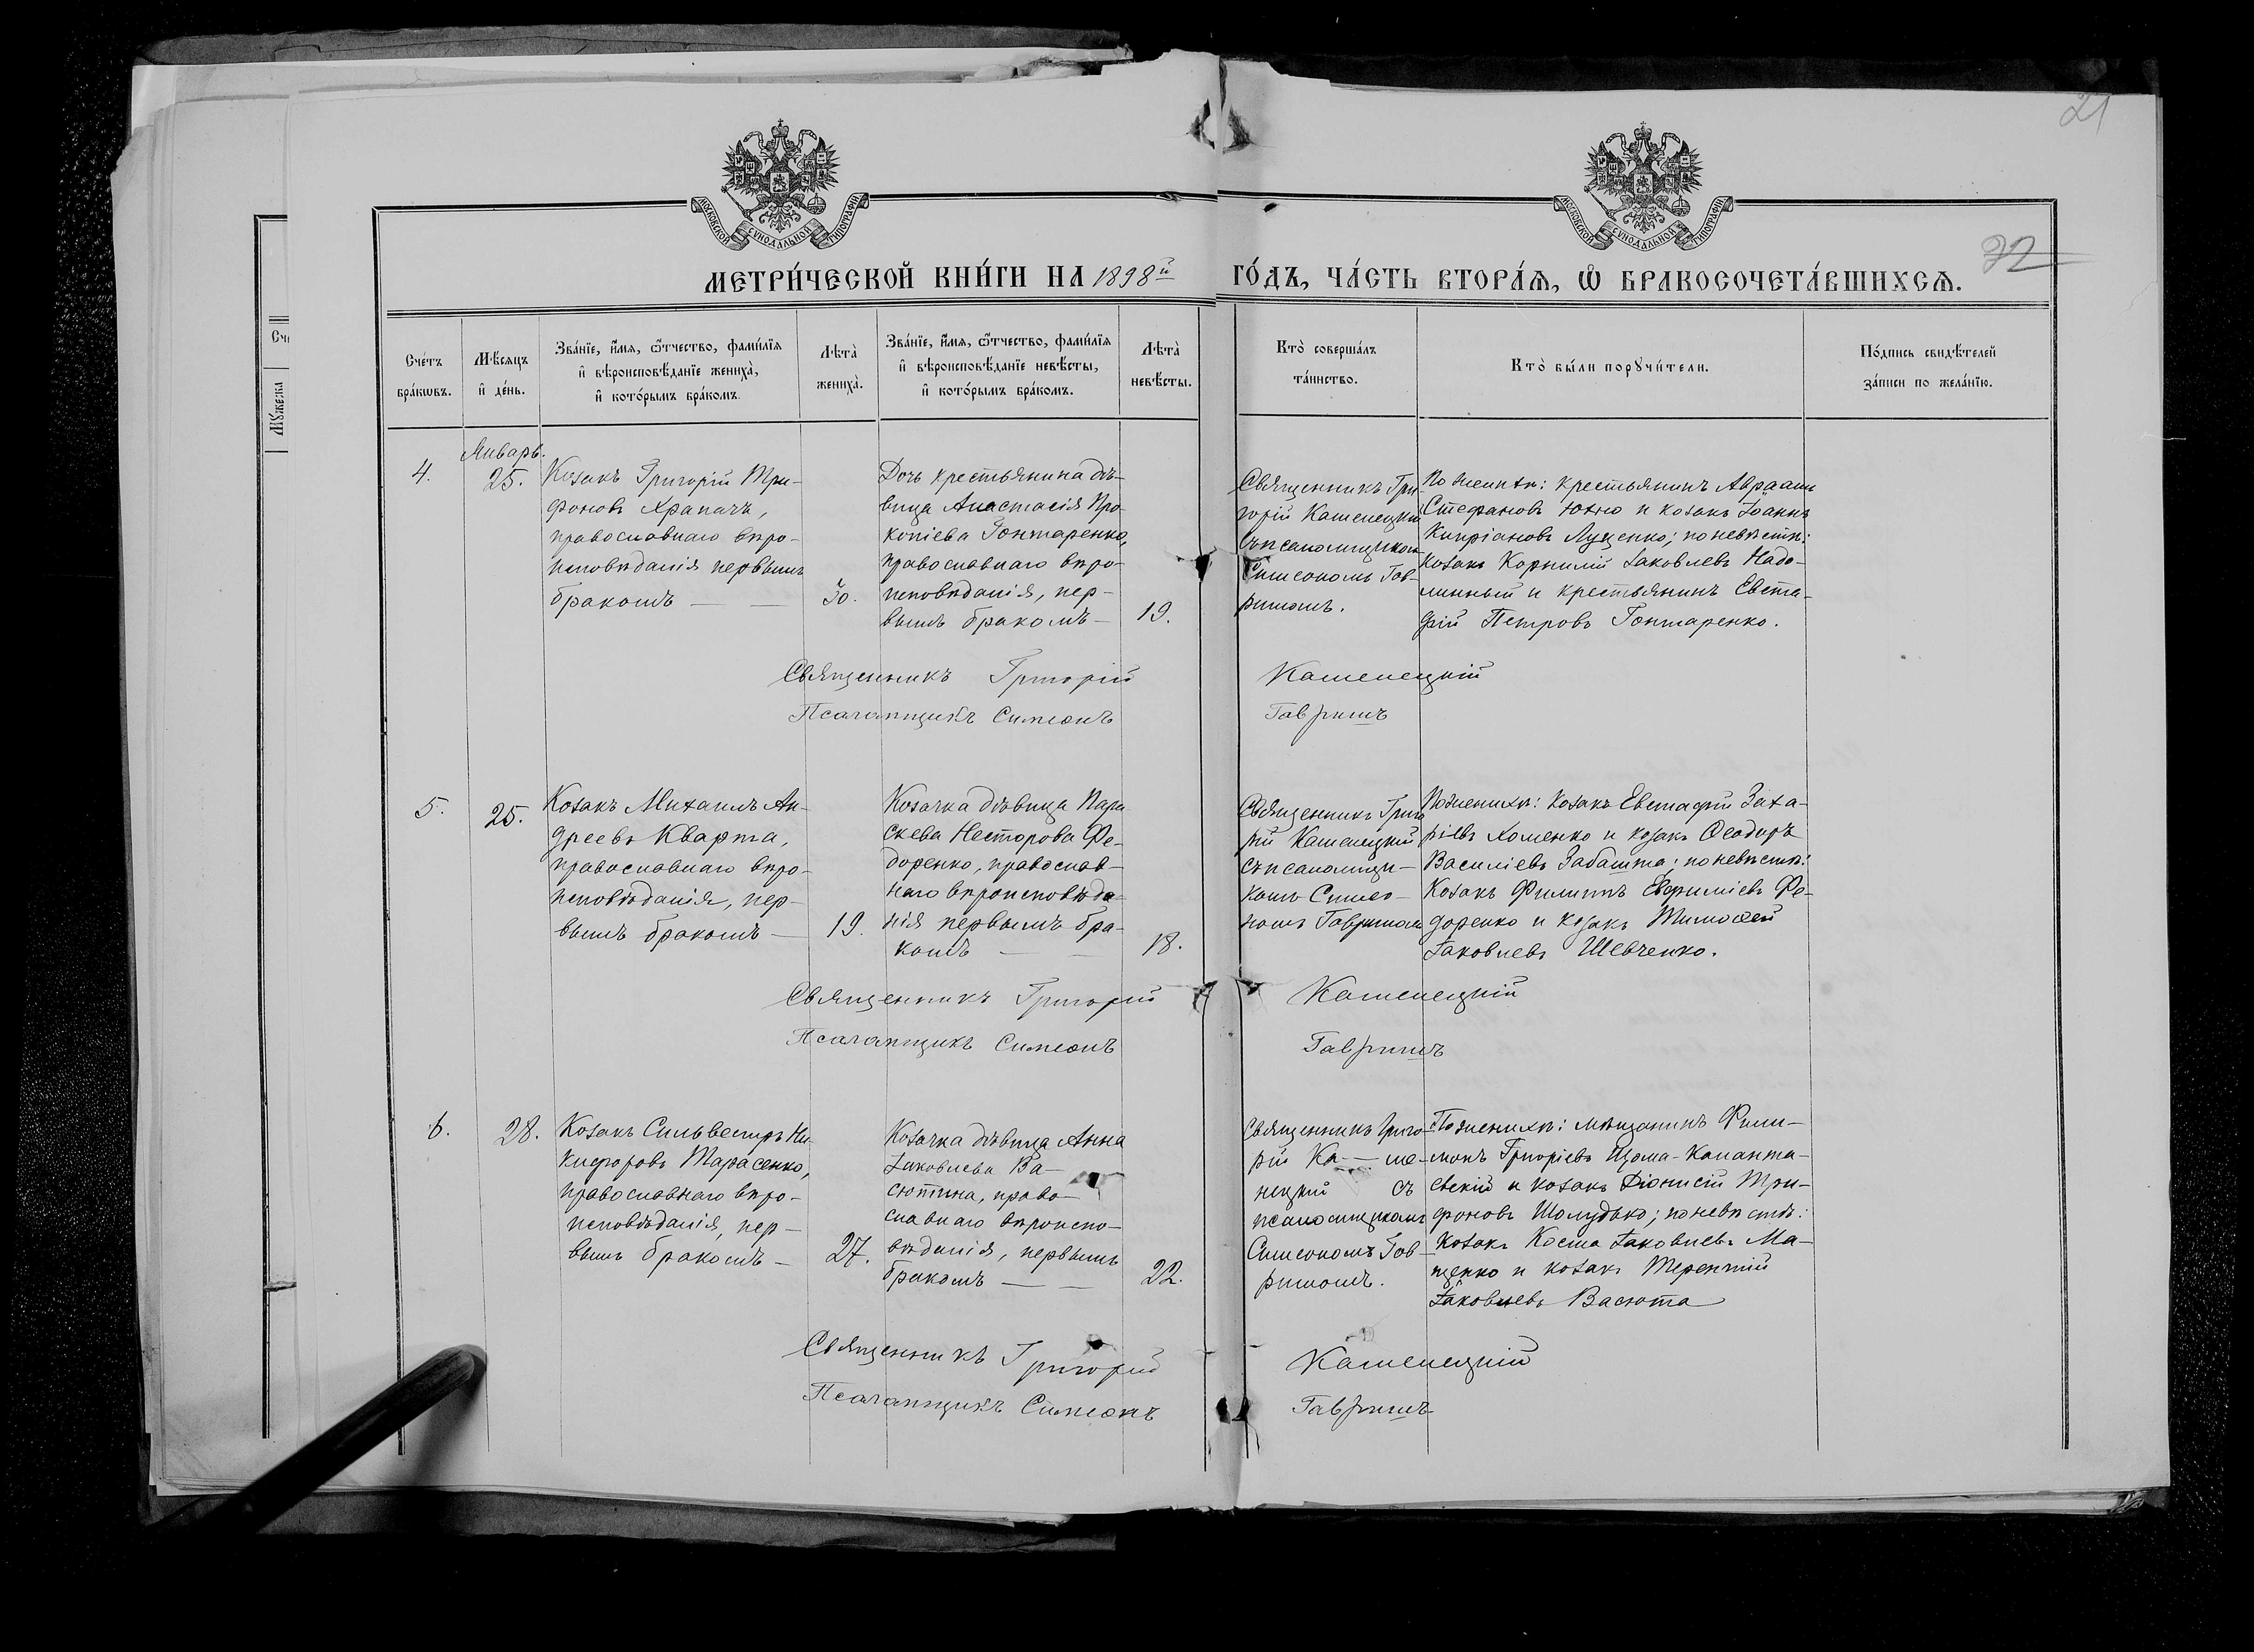 21
32
МОСКОВСКОЙ СѴНОДАЛЬНОЙ ТИПОГРАФІИ
МОСКОВСКОЙ СѴНОДАЛЬНОЙ ТИПОГРАФІИ
МЕТРИ́ЧЕСКОЙ КНИ́ГИ НА 1898й ГО́ДЪ, ЧА́СТЬ ВТОРА́Ѧ, Ѽ БРАКОСОЧЕТА́ВШИХСѦ.
Сче́тъ
бра́кѡвъ.
Мѣ́сяцъ
и҆ де́нь.
Зва́нїе, и҆́мя, ѻ҆́тчество, фами́лїя
и҆ вѣроисповѣ́данїе жениха̀,
и҆ кото́рымъ бра́комъ.
Лѣта̀
жениха̀.
Зва́нїе, и҆́мя, ѻ҆́тчество, фами́лїя
и҆ вѣроисповѣ́данїе невѣ́сты,
и҆ кото́рымъ бра́комъ.
Лѣта̀
невѣ́сты.
Кто̀ соверша́лъ
та́инство.
Кто̀ бы́ли порꙋчи́тели.
По́дпись свидѣ́телей
за́писи по жела́нїю.
4.
Январь.
25.
Козакъ Григорій Три-
фоновъ Храпачъ,
православнаго вѣро-
исповѣданія первымъ
бракомъ — —
30.
Дочь крестьянина дѣ-
вица Анастасія Про-
копіева Гонтаренко,
православнаго вѣро-
исповѣданія, пер-
вымъ бракомъ —
19.
Священникъ Гри-
горій Каменецкій
съ псаломщикомъ
Симеономъ Гав-
ришомъ.
По женихѣ: крестьянинъ Авраамъ
Стефановъ Юхно и козакъ Іоаннъ
Кипріановъ Луценко; по невѣстѣ:
козакъ Корнилій Іаковлевъ Надо-
линный и крестьянинъ Евста-
фій Петровъ Гонтаренко.
Священникъ Григорій Каменецкій
Псаломщикъ Симеонъ Гавришъ
5.
25.
Козакъ Михаилъ Ан-
дреевъ Кварта,
православнаго вѣро-
исповѣданія, пер-
вымъ бракомъ —
19.
Козачка дѣвица Пара
скева Несторова Фе-
доренко, православ-
наго вѣроисповѣда-
нія первымъ бра-
комъ — —
18.
Священникъ Григо
рій Каменецкій
съ псаломщи-
комъ Симео-
номъ Гавришомъ
По женихѣ: козакъ Евстафій Заха-
ріевъ Хоменко и козакъ Ѳеодоръ
Василіевъ Забашта; по невѣстѣ:
козакъ Филиппъ Евфиміевъ Фе-
доренко и козакъ Тимоѳей
Іаковлевъ Шевченко.
Священникъ Григорій Каменецкій
Псаломщикъ Симеонъ Гавришъ
6.
28.
Козакъ Сильвестръ Ни-
кифоровъ Тарасенко,
православнаго вѣро-
исповѣданія, пер-
вымъ бракомъ —
27.
Козачка дѣвица Анна
Іаковлева Ва-
сютина, право-
славнаго вѣроиспо-
вѣданія, первымъ
бракомъ — —
22.
Священникъ Григо-
рій Ка — ме-
нецкій съ
псаломщикомъ
Симеономъ Гав-
ришомъ.
По женихѣ: мѣщанинъ Фили-
монъ Григоріевъ
свскій и козакъ Діонисій Три-
фоновъ Шолудько; по невѣстѣ:
козакъ Косма Іаковлевъ Ма-
щенко и козакъ Терентій
Іаковлевъ Васюта
Священникъ Григорій Каменецкій
Псаломщикъ Симеонъ Гавришъ